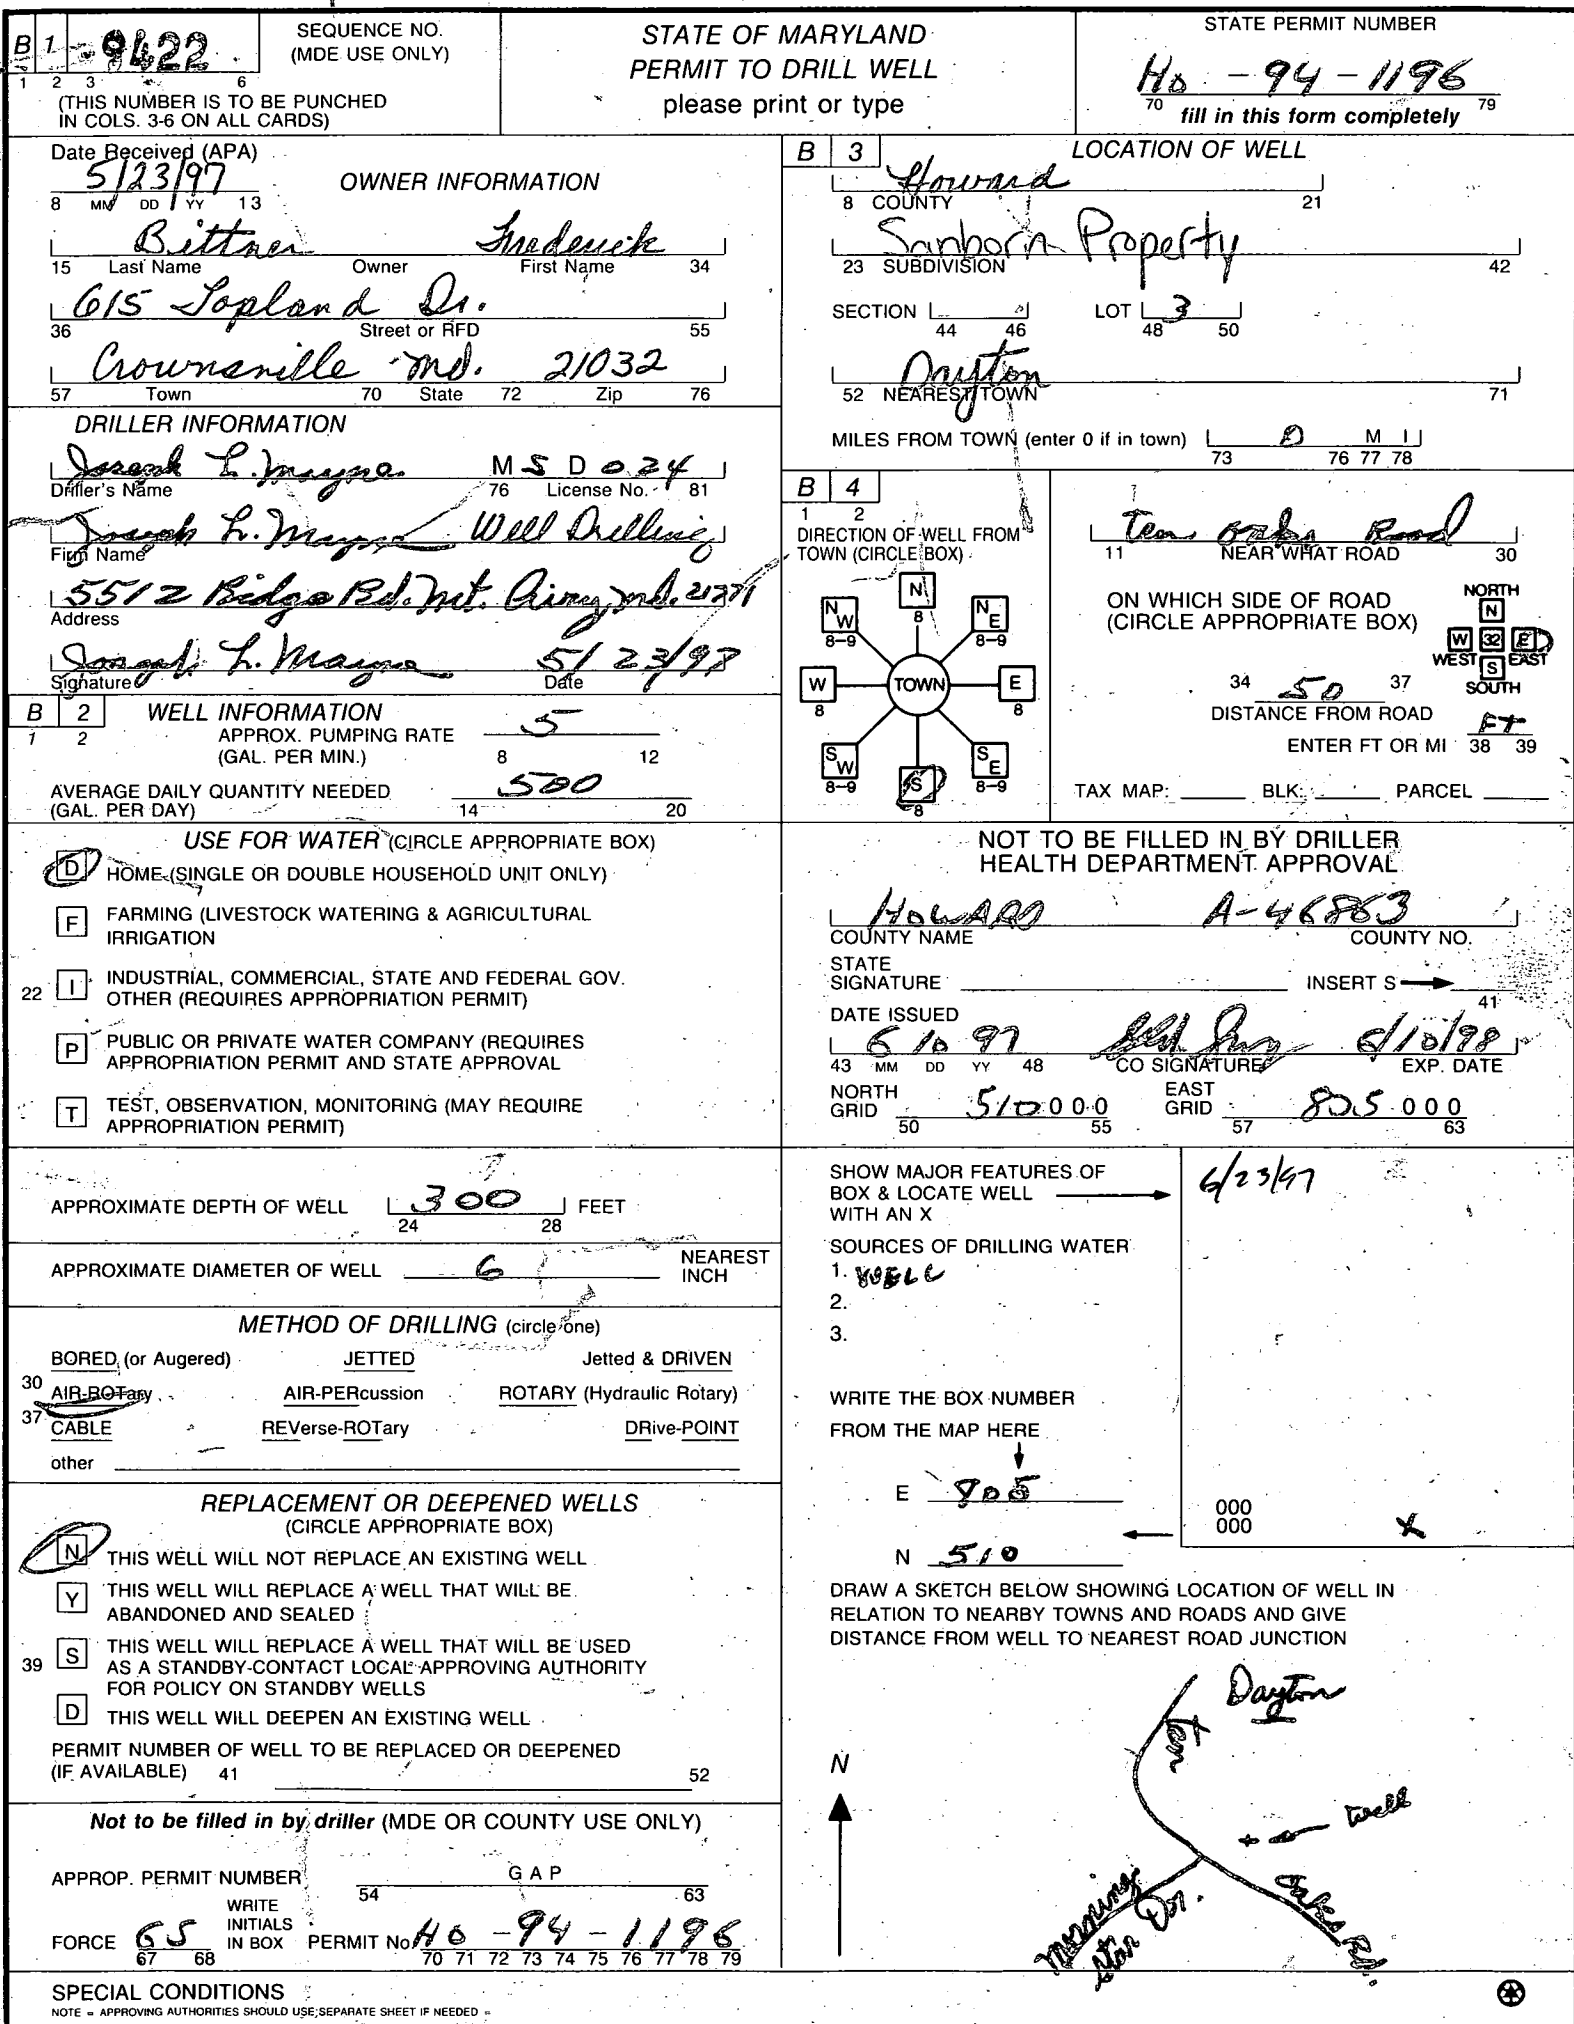 B 1 9422
1 2 3 6
SEQUENCE NO.
(MDE USE ONLY)
(THIS NUMBER IS TO BE PUNCHED
IN COLS. 3-6 ON ALL CARDS)
STATE OF MARYLAND
PERMIT TO DRILL WELL
please print or type
STATE PERMIT NUMBER
Ho - 94 - 1196
70 79
fill in this form completely
Date Received (APA)
5/23/97
8 MM DD YY 13
OWNER INFORMATION
Bittner Frederick
15 Last Name Owner First Name 34
615 Topland Dr.
36 Street or RFD 55
Crownsville Md. 21032
57 Town 70 State 72 Zip 76
DRILLER INFORMATION
Joseph L. Mayne M S D 024
Driller's Name 76 License No. 81
Joseph L. Mayne Well Drilling
Firm Name
5512 Ridge Rd. Mt. Airy, Md. 21771
Address
Joseph L. Mayne 5/23/97
Signature Date
B 2 WELL INFORMATION
1 2
APPROX. PUMPING RATE 5
(GAL. PER MIN.) 8 12
AVERAGE DAILY QUANTITY NEEDED 500
(GAL. PER DAY) 14 20
USE FOR WATER (CIRCLE APPROPRIATE BOX)
D HOME (SINGLE OR DOUBLE HOUSEHOLD UNIT ONLY)
F FARMING (LIVESTOCK WATERING & AGRICULTURAL
IRRIGATION
22 I INDUSTRIAL, COMMERCIAL, STATE AND FEDERAL GOV.
OTHER (REQUIRES APPROPRIATION PERMIT)
P PUBLIC OR PRIVATE WATER COMPANY (REQUIRES
APPROPRIATION PERMIT AND STATE APPROVAL
T TEST, OBSERVATION, MONITORING (MAY REQUIRE
APPROPRIATION PERMIT)
APPROXIMATE DEPTH OF WELL 300 FEET
24 28
APPROXIMATE DIAMETER OF WELL 6 NEAREST
INCH
METHOD OF DRILLING (circle one)
BORED (or Augered) JETTED Jetted & DRIVEN
30 AIR-ROTary AIR-PERcussion ROTARY (Hydraulic Rotary)
37 CABLE REVerse-ROTary DRive-POINT
other
REPLACEMENT OR DEEPENED WELLS
(CIRCLE APPROPRIATE BOX)
N THIS WELL WILL NOT REPLACE AN EXISTING WELL
Y THIS WELL WILL REPLACE A WELL THAT WILL BE
ABANDONED AND SEALED
39 S THIS WELL WILL REPLACE A WELL THAT WILL BE USED
AS A STANDBY-CONTACT LOCAL APPROVING AUTHORITY
FOR POLICY ON STANDBY WELLS
D THIS WELL WILL DEEPEN AN EXISTING WELL
PERMIT NUMBER OF WELL TO BE REPLACED OR DEEPENED
(IF AVAILABLE) 41 52
Not to be filled in by driller (MDE OR COUNTY USE ONLY)
APPROP. PERMIT NUMBER G A P
54 63
FORCE GS WRITE INITIALS IN BOX PERMIT No. HO - 94 - 1196
67 68 70 71 72 73 74 75 76 77 78 79
SPECIAL CONDITIONS
NOTE = APPROVING AUTHORITIES SHOULD USE SEPARATE SHEET IF NEEDED =
B 3 LOCATION OF WELL
Howard
8 COUNTY 21
Sanborn Property
23 SUBDIVISION 42
SECTION LOT 3
44 46 48 50
Dayton
52 NEAREST TOWN 71
MILES FROM TOWN (enter 0 if in town) 0 M I
73 76 77 78
B 4
1 2
DIRECTION OF WELL FROM
TOWN (CIRCLE BOX)
N 8
NW 8-9 NE 8-9
W 8 TOWN E 8
SW 8-9 S 8 SE 8-9
Ten Oaks Road
11 NEAR WHAT ROAD 30
ON WHICH SIDE OF ROAD
(CIRCLE APPROPRIATE BOX)
NORTH
N
W 32 E
WEST S EAST
SOUTH
34 50 37
DISTANCE FROM ROAD
ENTER FT OR MI Ft
38 39
TAX MAP: BLK: PARCEL
NOT TO BE FILLED IN BY DRILLER
HEALTH DEPARTMENT APPROVAL
HOWARD A-46863
COUNTY NAME COUNTY NO.
STATE
SIGNATURE INSERT S
41
DATE ISSUED
6 10 97 6/10/98
43 MM DD YY 48 CO SIGNATURE EXP. DATE
NORTH GRID 510 000 EAST GRID 805 000
50 55 57 63
SHOW MAJOR FEATURES OF
BOX & LOCATE WELL
WITH AN X
6/23/97
SOURCES OF DRILLING WATER
1. WELL
2.
3.
WRITE THE BOX NUMBER
FROM THE MAP HERE
E 805
N 510
000
000
X
DRAW A SKETCH BELOW SHOWING LOCATION OF WELL IN
RELATION TO NEARBY TOWNS AND ROADS AND GIVE
DISTANCE FROM WELL TO NEAREST ROAD JUNCTION
Dayton
Ten
N
well
Morning
Star Dr.
Oaks Rd.